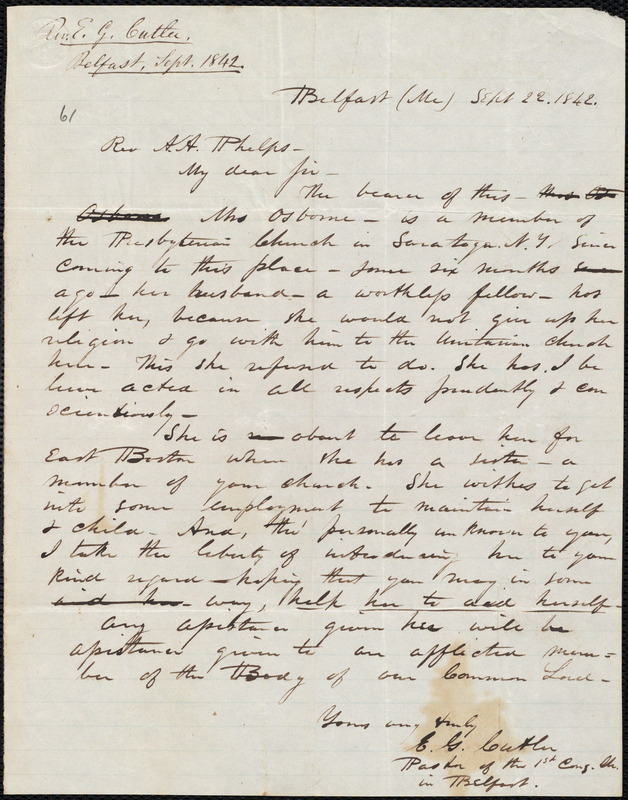 Rev. E. G. Cutler.
Belfast, Sept. 1842.
Belfast (Me) Sept 22. 1842.
61
Rev A. A. Phelps -
My dear Sir -
The bearer of this - Mrs Os
Osborne Mrs Osborne - is a member of
the Presbyterian Church in Saratoga. N.Y. Since
coming to this place - some six months
ago - her husband - a worthless fellow - has
left her, because she would not give up her
religion & go with him to the Unitarian church
here - This she refused to do. She has, I be
lieve acted in all respects prudently & con
scientiously -
She is about to leave here for
East Boston where she has a sister - a
member of your church. She wishes to get
into some employment to maintain herself
& child - And, tho' personally unknown to you,
I take the liberty of introducing her to your
kind regard - hoping that you may in some
aid her - way, help her to aid herself -
Any assistance given her will be
assistance given to an afflicted mem=
ber of the Body of our Common Lord -
Yours very truly
E. G. Cutler
Pastor of the 1st Cong. Ch.
in Belfast.